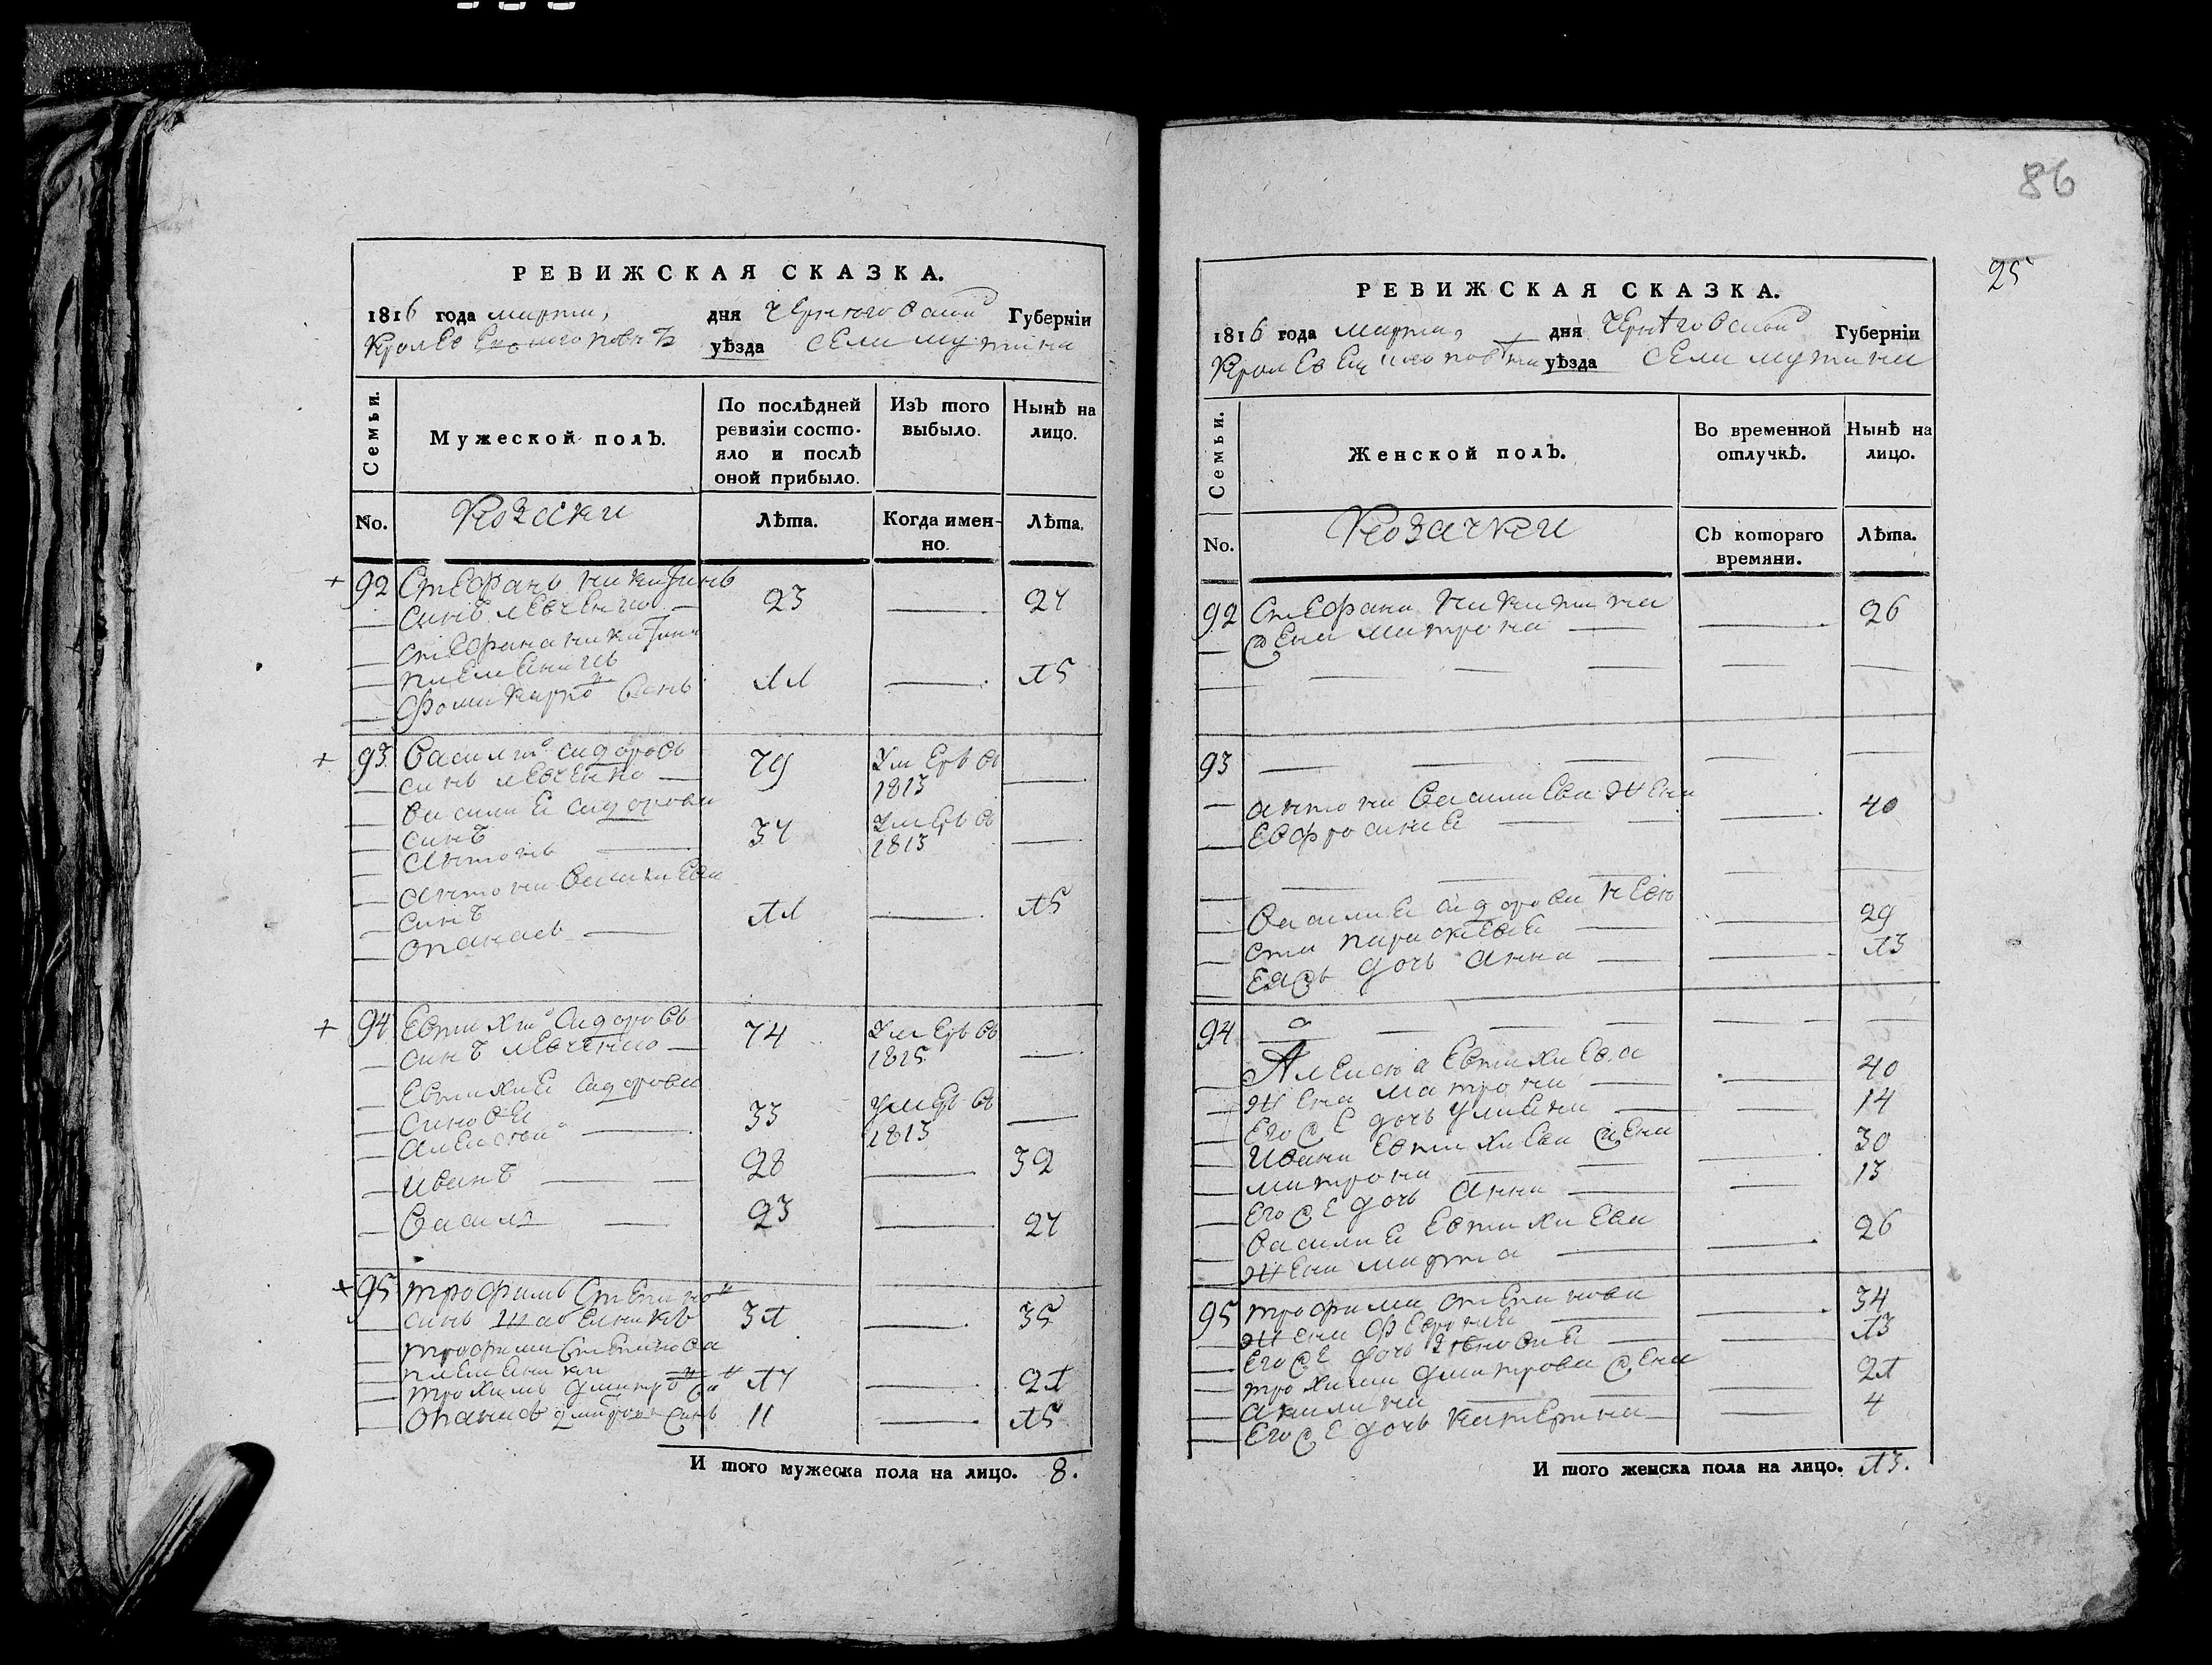 РЕВИЖСКАЯ СКАЗКА.
1816 года марта, дня Черниговской Губерніи
уѣзда села Мутина
Семьи. Мужеской полъ. По послѣдней ревизіи состояло и послѣ оной прибыло. Изъ того выбыло. Нынѣ на лицо.
No. Козаки Лѣта. Когда именно. Лѣта.
92 Стефанъ Никитинъ
синъ Левченко 23 27
Стефана Никитина
племенникъ
Фома Карповъ синъ 11 15
93 Василий Сидоровъ
синъ Левченко 79 Умеръ въ 1813
Василия Сидорова
синъ
Антонъ 37 Умеръ въ 1813
Антона Василиева
синъ
Опанасъ 11 15
94 Евтихий Сидоровъ
синъ Левченко 74 Умеръ въ 1815
Евтихия Сидорова
синовья
Алексей 33 Умеръ въ 1813
Иванъ 28 32
Василь 23 27
95 Трофимъ Степановъ
синъ 31 35
Трофима Степанова
племенники
Трохимъ Дмитровъ синъ 17 21
Опанасъ Дмитровъ синъ 11 15
И того мужеска пола на лицо. 8.
86
25
РЕВИЖСКАЯ СКАЗКА.
1816 года марта, дня Черниговской Губерніи
уѣзда села Мутина
Семьи. Женской полъ. Во временной отлучкѣ. Нынѣ на лицо.
No. Козачки Съ котораго времяни. Лѣта.
92 Стефана Никитина
жена Матрона 26
93
Антона Василиева жена
Евфросиния 40
Василия Сидорова невѣ
стка Параскевия 29
Еяжъ дочь Анна 13
94
Алексѣя Евтихиева
жена Матрона 40
Егоже дочь Улияна 14
Ивана Евтихиева жена
Матрона 30
Егоже дочь Анна 13
Василия Евтихиева
жена Марфа 26
95 Трофима Степанова
жена Феврония 34
Егоже дочь Зѣновия 13
Трохима Дмитрова жена
Акилина 21
Егоже дочь Катерина 4
И того женска пола на лицо. 13.